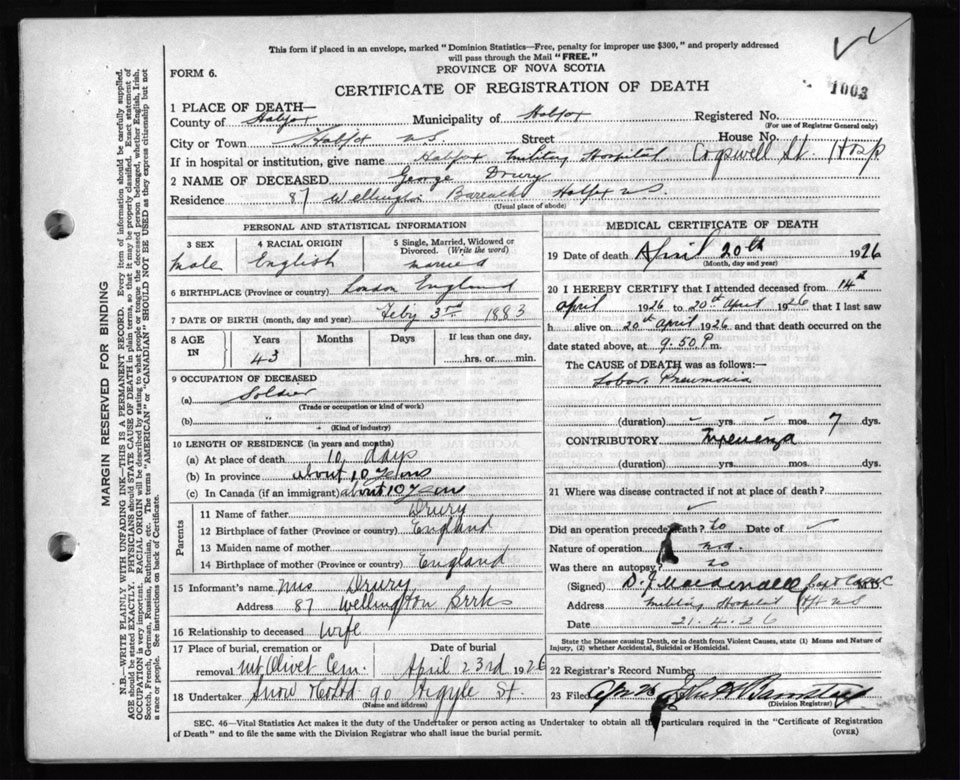 This form if placed in an envelope, marked "Dominion Statistics—Free, penalty for improper use $300," and properly addressed
will pass through the Mail "FREE."
PROVINCE OF NOVA SCOTIA
FORM 6.
CERTIFICATE OF REGISTRATION OF DEATH
1003
1 PLACE OF DEATH—
County of Halifax Municipality of Halifax Registered No.
(For use of Registrar General only)
City or Town Halifax NS Street House No.
If in hospital or institution, give name Halifax Military Hospital Cogswell St. Hosp
2 NAME OF DECEASED George Drury
Residence 87 Wellington Barracks Halifax NS.
(Usual place of abode)
PERSONAL AND STATISTICAL INFORMATION
3 SEX 4 RACIAL ORIGIN 5 Single, Married, Widowed or Divorced. (Write the word)
Male English Married
6 BIRTHPLACE (Province or country) London England
7 DATE OF BIRTH (month, day and year) Feby 3rd 1883
8 AGE IN Years Months Days If less than one day,
43 hrs. or min.
9 OCCUPATION OF DECEASED
(a) Soldier
(Trade or occupation or kind of work)
(b) " "
(Kind of industry)
10 LENGTH OF RESIDENCE (in years and months)
(a) At place of death 10 days
(b) In province about 10 years
(c) In Canada (if an immigrant) about 10 years
Parents
11 Name of father Drury
12 Birthplace of father (Province or country) England
13 Maiden name of mother
14 Birthplace of mother (Province or country) England
15 Informant's name Mrs Drury
Address 87 Wellington Brrks
16 Relationship to deceased Wife
17 Place of burial, cremation or removal Date of burial
Mt Olivet Cem. April 23rd 1926
18 Undertaker Snow 90 Argyle St.
(Name and address)
MEDICAL CERTIFICATE OF DEATH
19 Date of death April 20th 1926
(Month, day and year)
20 I HEREBY CERTIFY that I attended deceased from 14th
April 1926 to 20th April 1926 that I last saw
h alive on 20th April 1926 and that death occurred on
date stated above, at 9.50 P.m.
The CAUSE of DEATH was as follows:—
Lobar Pneumonia
(duration) yrs. mos. 7 dys.
CONTRIBUTORY Influenza
(duration) yrs. mos. dys.
21 Where was disease contracted if not at place of death?
Did an operation precede death? No Date of
Nature of operation
Was there an autopsy? No
(Signed) Capt
Address Military Hospital Hfx NS
Date 21.4.26
State the Disease causing Death, or in death from Violent Causes, state (1) Means and Nature of
Injury, (2) whether Accidental, Suicidal or Homicidal.
22 Registrar's Record Number
23 Filed
(Division Registrar)
SEC. 46—Vital Statistics Act makes it the duty of the Undertaker or person acting as Undertaker to obtain all the particulars required in the "Certificate of Registration
of Death" and to file the same with the Division Registrar who shall issue the burial permit.
(OVER)
MARGIN RESERVED FOR BINDING
N.B.—WRITE PLAINLY WITH UNFADING INK—THIS IS A PERMANENT RECORD. Every item of information should be carefully supplied.
AGE should be stated EXACTLY. PHYSICIANS should STATE CAUSE OF DEATH in plain terms, so that it may be properly classified. Exact statement of
OCCUPATION is very important. RACIAL ORIGIN will be described by stating to what people or tongue the deceased person belonged, whether English, Irish,
Scotch, French, German, Russian, Ruthenian, etc. The terms "AMERICAN" or "CANADIAN" SHOULD NOT BE USED as they express citizenship but not
a race or people. See instructions on back of Certificate.